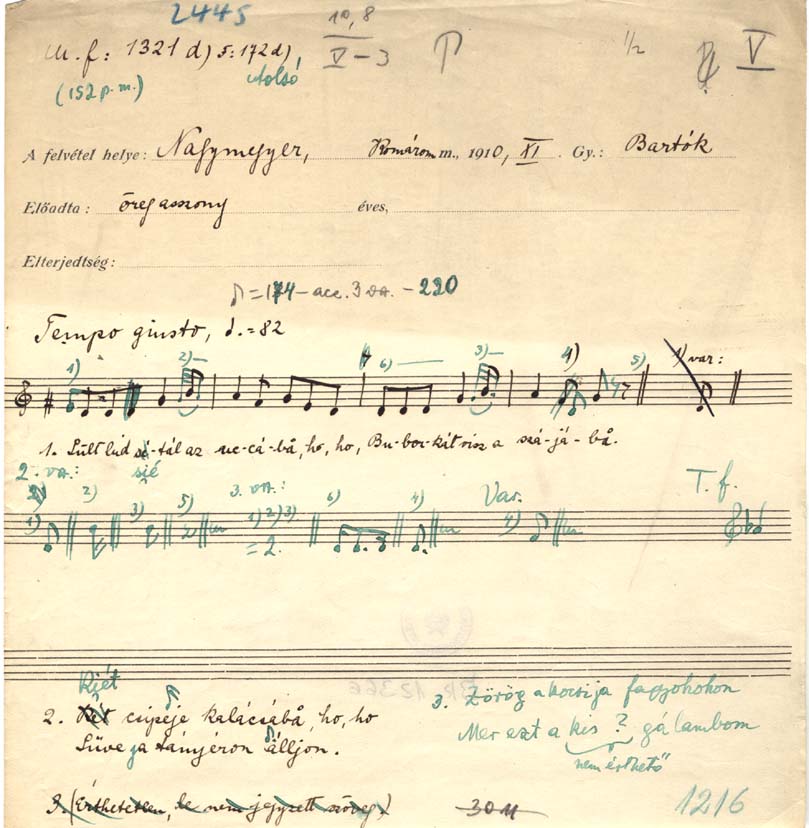 2445
M. f.: 1321 d) 5: 172 d) 10,8 V-3 1/2 V
(152 p. m.) utolsó
A felvétel helye: Nagymegyer, Komárom m., 1910, XI. Gy.: Bartók
Előadta: öregasszony éves,
Elterjedtség:
♪=174 – acc. 3 VA. – 220
Tempo giusto, ♩.=82
1) 2) 6) 3) 4) 5) var:
1. Sült lúd tál az uc-cá-bå, ho, ho, Bu-bor-kát visz a szá-já-bå.
2. VA.: sié
1) 2) 3) 5) 3. VA.: 1) 2) 3) = 2. 6) 4) Var. 4) T. f.
BR 12366
Kiét
2. csipéje kalácsábå, ho, ho
Süve ga tányéron álljon.
3. Zörög a kocsija fagyohohon
Mer ezt a kis ? gálambom
nem érthető
3. (Érthetetlen, le nem jegyzett szöveg)
1216